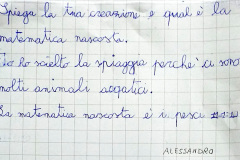 Spiega la tua creazione e qual è la
matematica nascosta.
Io ho scelto la spiaggia perchè ci sono
molti animali acqatici.
La matematica nascosta è i pesci
ALESSANDRO